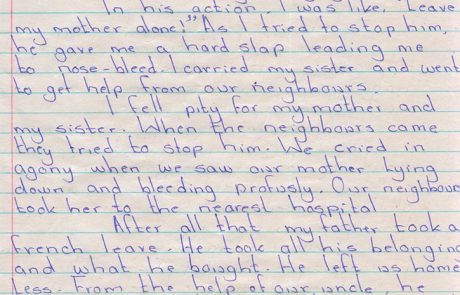 In his action. I was like, Leave
my mother alone!" As I tried to stop him,
he gave me a hard slap leading me
to nose-bleed. I carried my sister and went
to get help from our neighbours.
I fell pity for my mother and
my sister. When the neighbours came
they tried to stop him. We cried in
agony when we saw our mother lying
down and bleeding profusly. Our neighbour
took her to the nearest hospital
After all that my father took a
french leave. He took all his belonging
and what he bought. He left us home
less. From the help of our uncle he